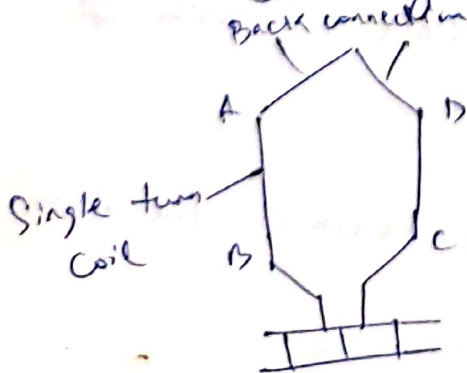 Back connection
A
D
Single turn
coil
B
C